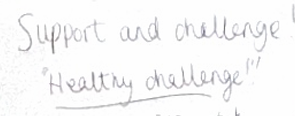 Support and challenge!
"Healthy challenge!!"